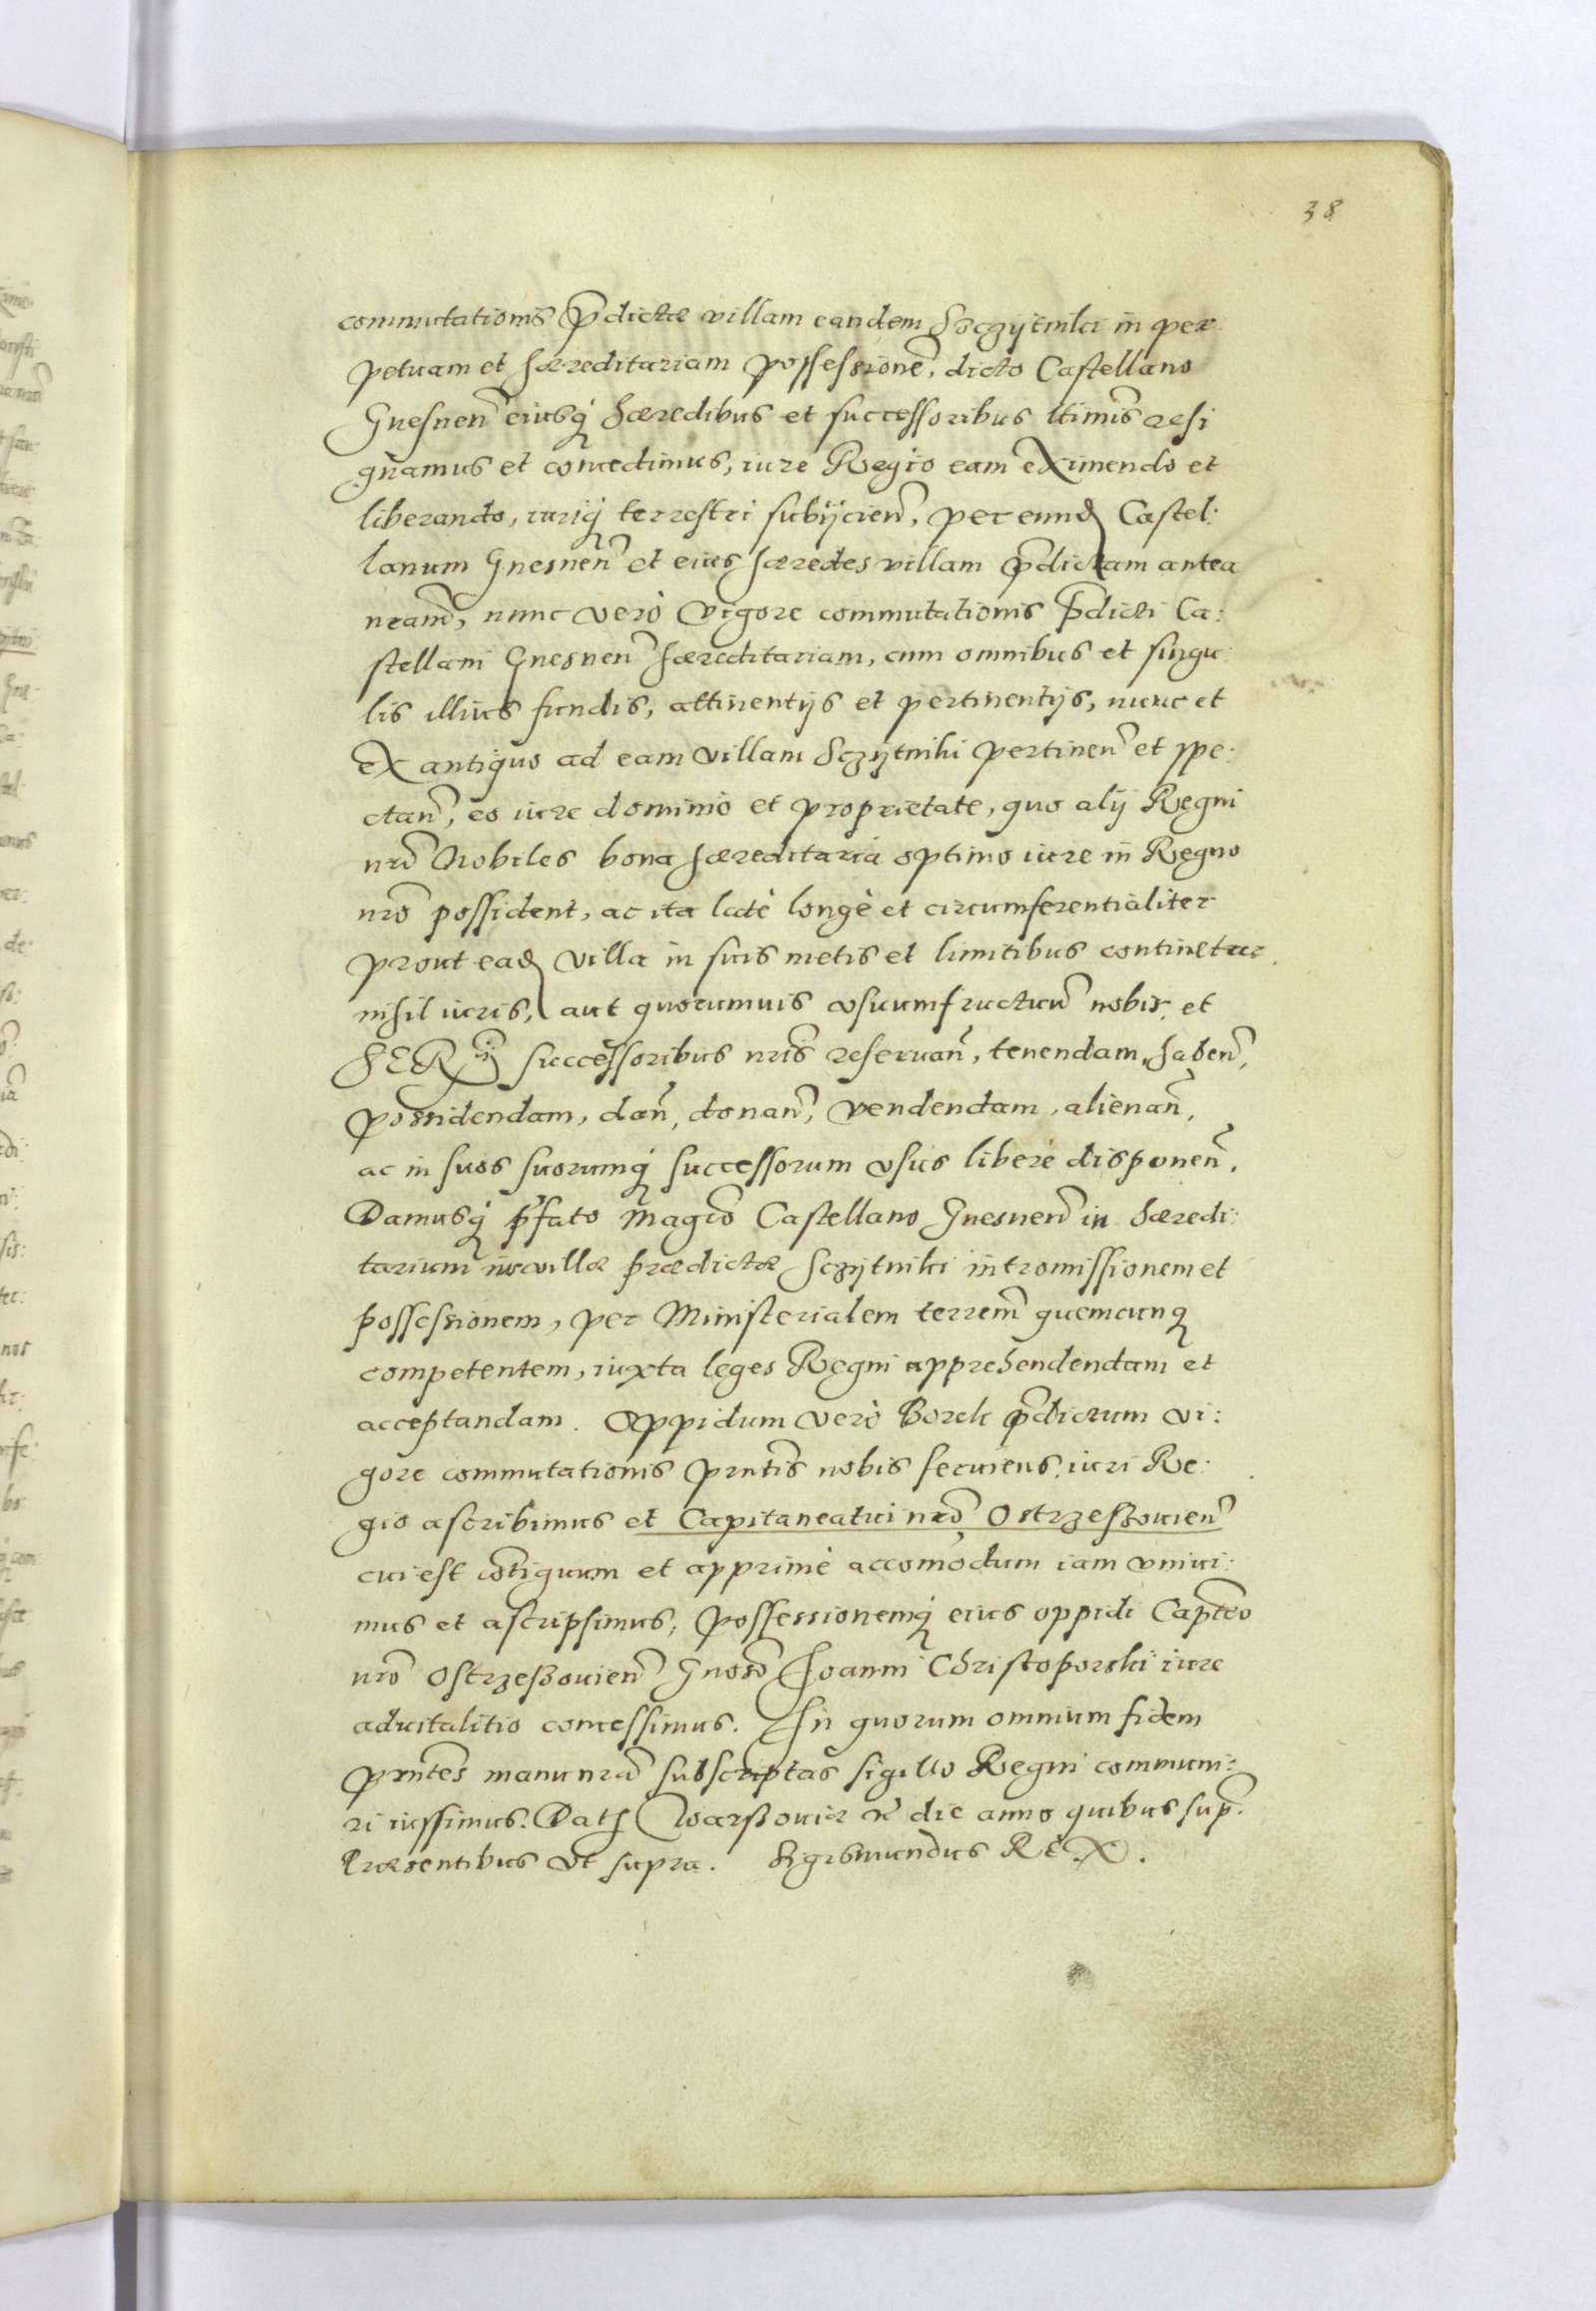 38
commutationis p̃dictæ villam eandem Sczÿtniki in per
petuam et hæreditariam possessionẽ, dicto Castellano
Gnesneñ eiusq̷ hæredibus et successoribus ltimis resi
gnamus et concedimus, iure Regio eam eximendo et
liberando, iuriq̷ terrestri subijcieñ, per eund Castel:
lanum Gnesneñ et eius hæredes villam p̃dictam antea
nrãm, nunc verò vigore commutationis p̃dicti Ca:
stellani Gnesneñ hæreditariam, cum omnibus et singu:
lis illius fundis, attinentijs et pertinentijs, nunc et
ex antiquo ad eam villam Sczÿtniki pertineñ et spe:
ctañ, eo iure dominio et proprietate, quo alij Regni
nrĩ Nobiles bona hæreditaria optimo iure in Regno
nrõ possident, ac ita latè longè et circumferentialiter
prout ead villa in suis metis et limitibus continetur.
nihil iuris, aut quorumuis vsuumfructuũ nobis, et
SER successoribus nrĩs reseruañ, tenendam, habeñ,
possidendam, dañ, donañ, vendendam, alienañ,
ac in suos suorumq̷ successorum vsus liberè disponeñ.
Damusq̷ p̃fato Magcõ Castellano Gnesneñ in hæredi:
tarium ius villæ prædictæ Sczÿtniki intromissionem et
possessionem, per Ministerialem terrem̃ quemcunq̷
competentem, iuxta leges Regni apprehendendam et
acceptandam. Oppidum verò Borek p̃dictum vi:
gore commutationis pñtis nobis seruiens, iuri Re:
gio ascribimus et Capitaneatui nrõ Ostrzeßouieñ
cui est cõtiguum et apprimè accomodum iam vniui:
mus et ascripsimus, possessionemq̷ eius oppidi Capteo
nrõ Ostrzeßouieñ Gnoso Joanni Christoporski iure
aduitalitio concessimus. In quorum omnium fidem
pñtes manu nrã subscriptas sigillo Regni communi:
ri iussimus. Dat Warßouiæ die anno quibus sup̃.
Præsentibus vt supra. Sigismundus REX.